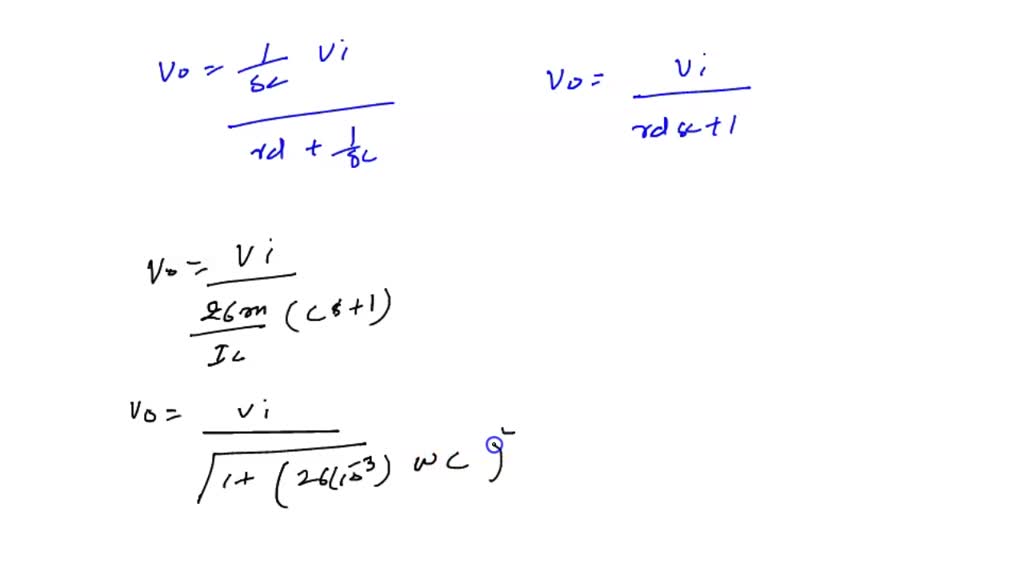 Vo = 1/sc Vi / rd + 1/sc
Vo = Vi / rd sc + 1
Vo = Vi / 26m/Ic (cs+1)
Vo = Vi / √1+ (26(10^-3) wc)^2